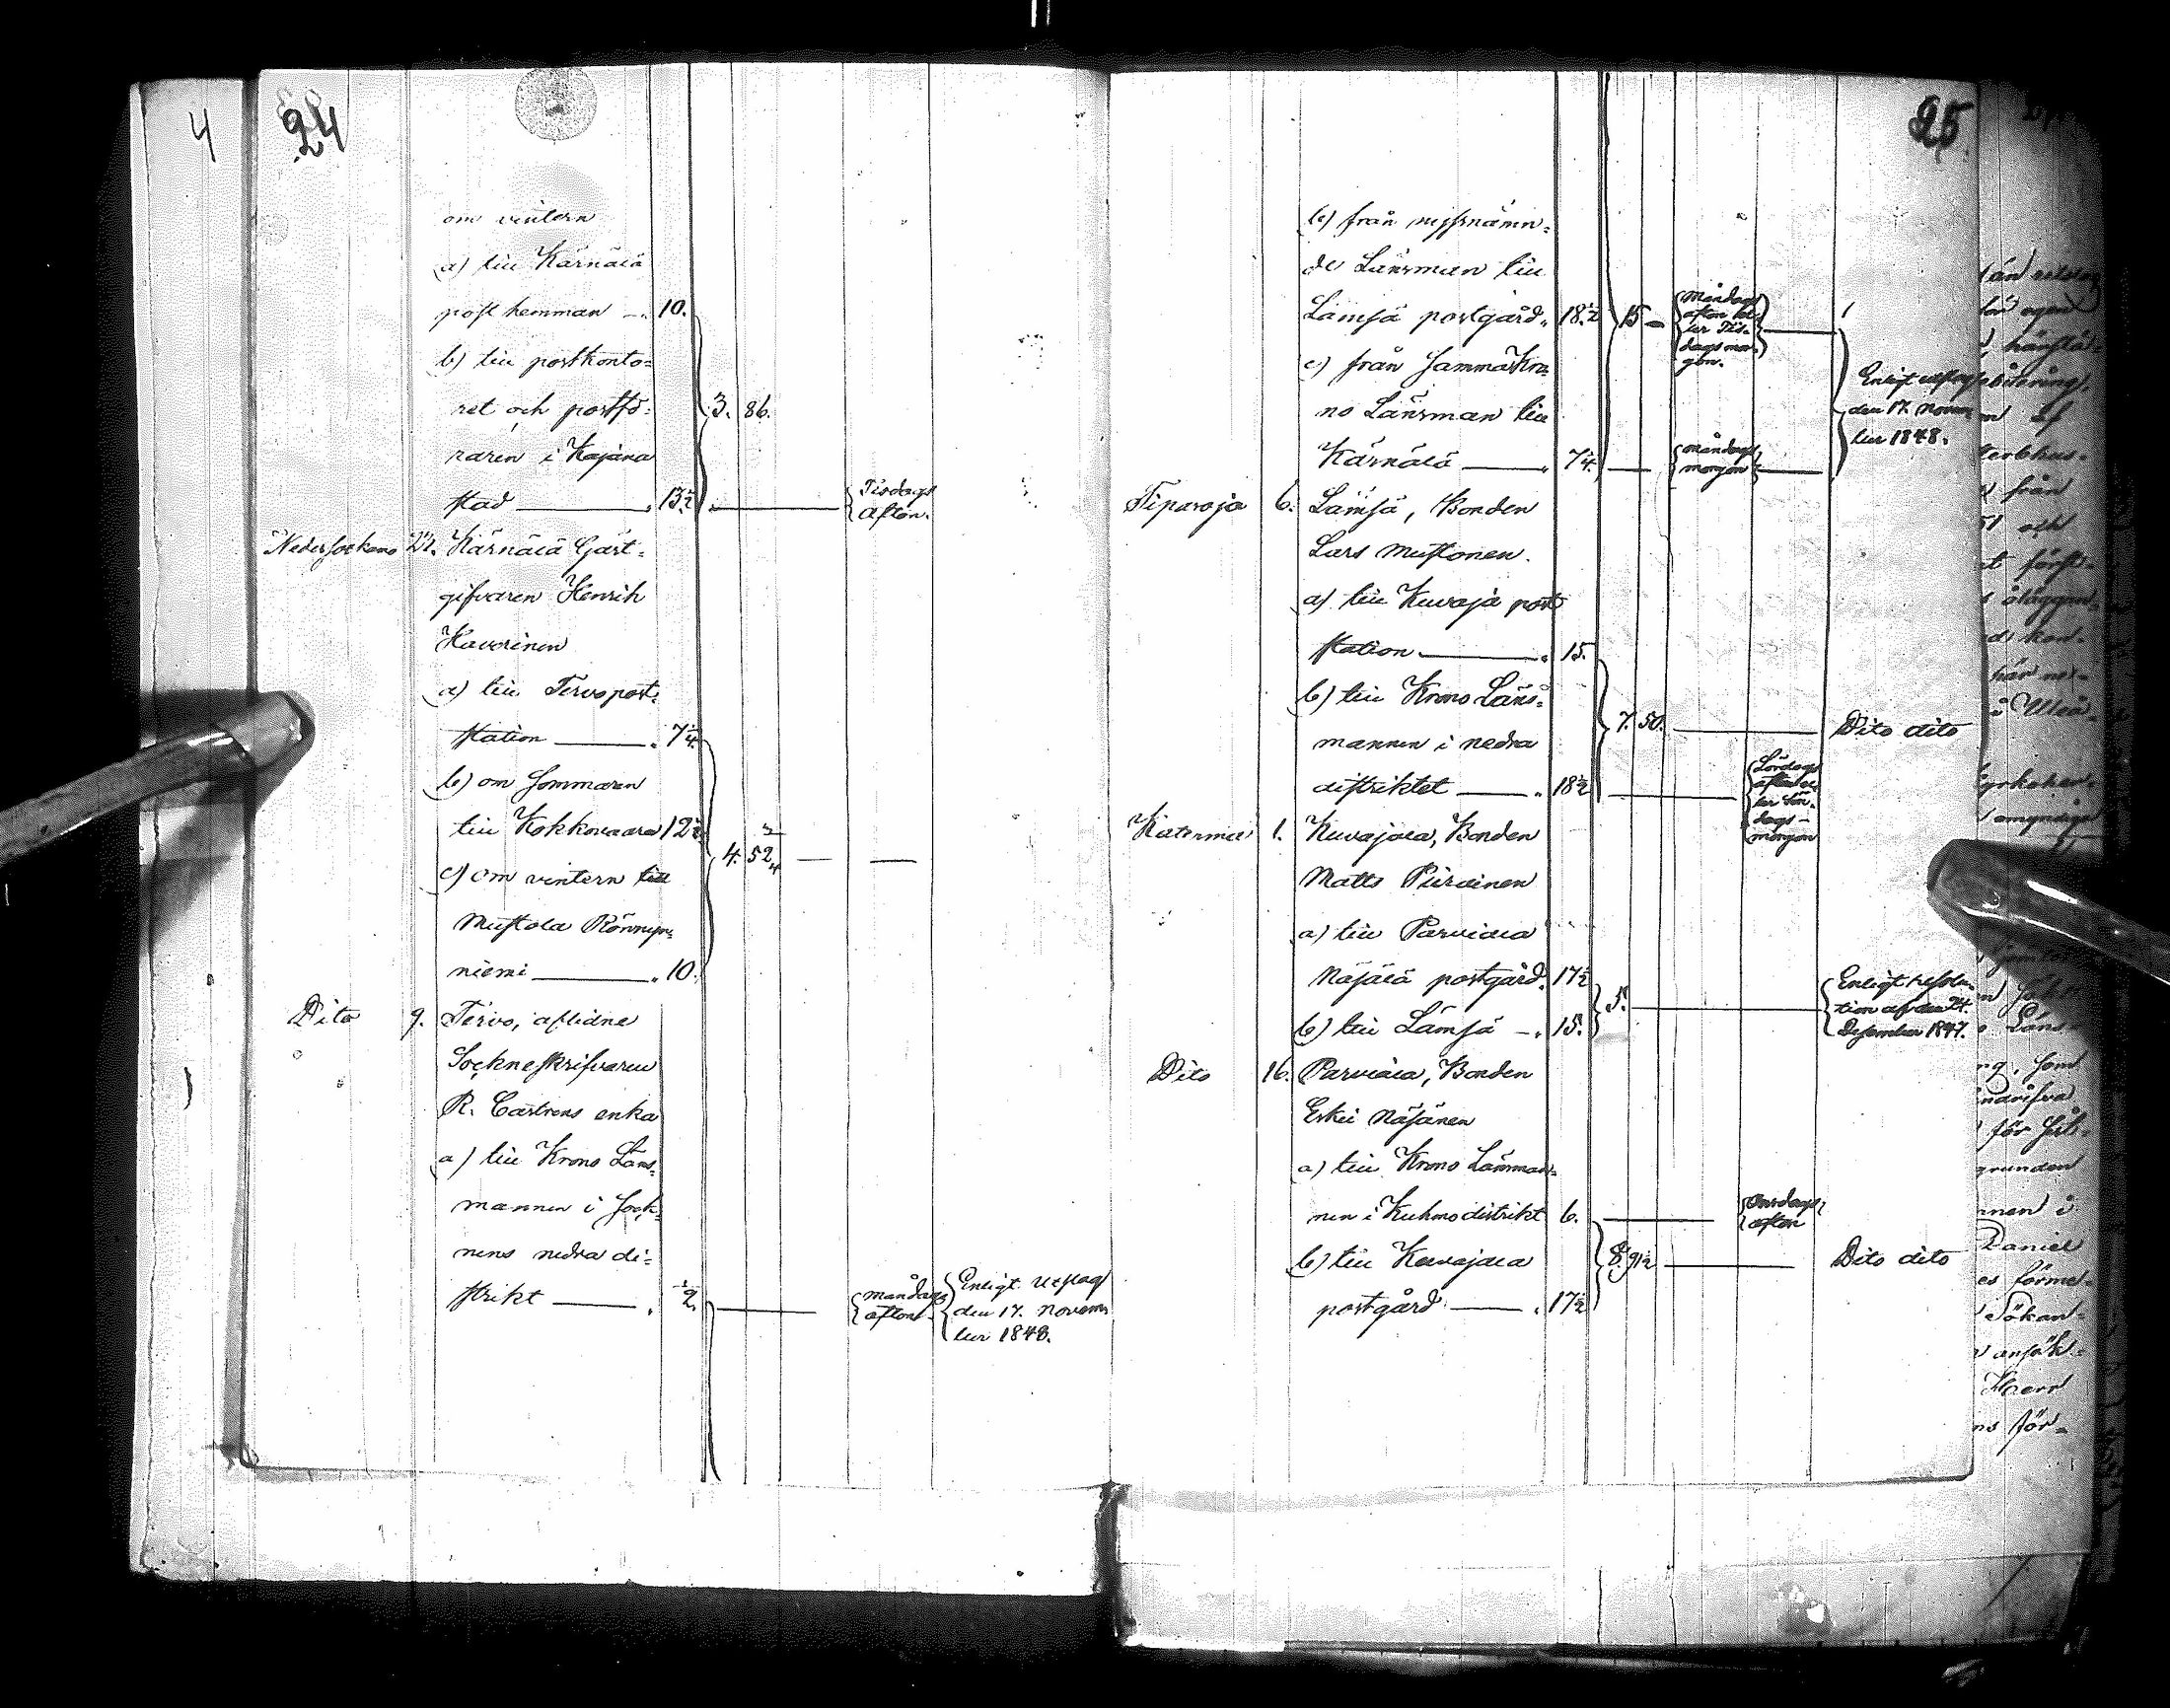 4
24
om vintern
a) till Kärnälä
post hemman — „ 10.
b) till postkonto=
ret och postfö=
3. 86.
raren i Kajana
stad ——— „ 13½
Tisdags
Afton.
Nedersockne 24. Kärnälä Gäst=
gifvaren Henrik
Kavorinen
a) till Tervo post=
station ——— „ 7¼
b) om sommaren
till Kokkovaara 12½
4. 52¾ — —
c) om vintern till
Mustola Rönnyn=
niemi ——— „ 10.
Dito 9. Tervo, aflidne
Sockneskrifvaren
R. Castrens enka
a) till Krono Läns=
mannen i Sock=
nens nedra di=
strikt ——— „ ½
Måndags
afton.
Enligt utslag
den 17. Novem
ber 1848.
25
b) från nyssnämn=
de Länsman till
Lämsä postgård „ 18½
15 —
Måndags
afton el=
ler Tis=
dags mor=
gon.
c) från samma Kro=
no Länsman till
Kärnälä ——— „ 7¼
måndags
morgon
Enligt utslag
den 17. Novem
ber 1848.
Tiparoja 6. Lämsä, Bonden
Lars Mustonen.
a) till Kuvaja post
station ——— „ 15.
b) till Krono Läns=
mannen i nedra
distriktet ——— „ 18½
7. 50.
Dito dito
Lördags
afton el=
ler Sön=
dags=
morgon
Katerma 1. Kuvajala, Bonden
Matts Piirainen
a) till Parviala
Näjälä postgård. 17½
b) till Lämsä — „ 15.
5.
Enligt resolu=
tion af den 24.
December 1847.
Dito 16. Parviala, Bonden
Erkki Näjänen
a) till Krono Länsman=
nen i Kuhmo distrikt 6.
Onsdags
afton
b) till Kuvajala
postgård ——— „ 17½
8. 91½
Dito dito